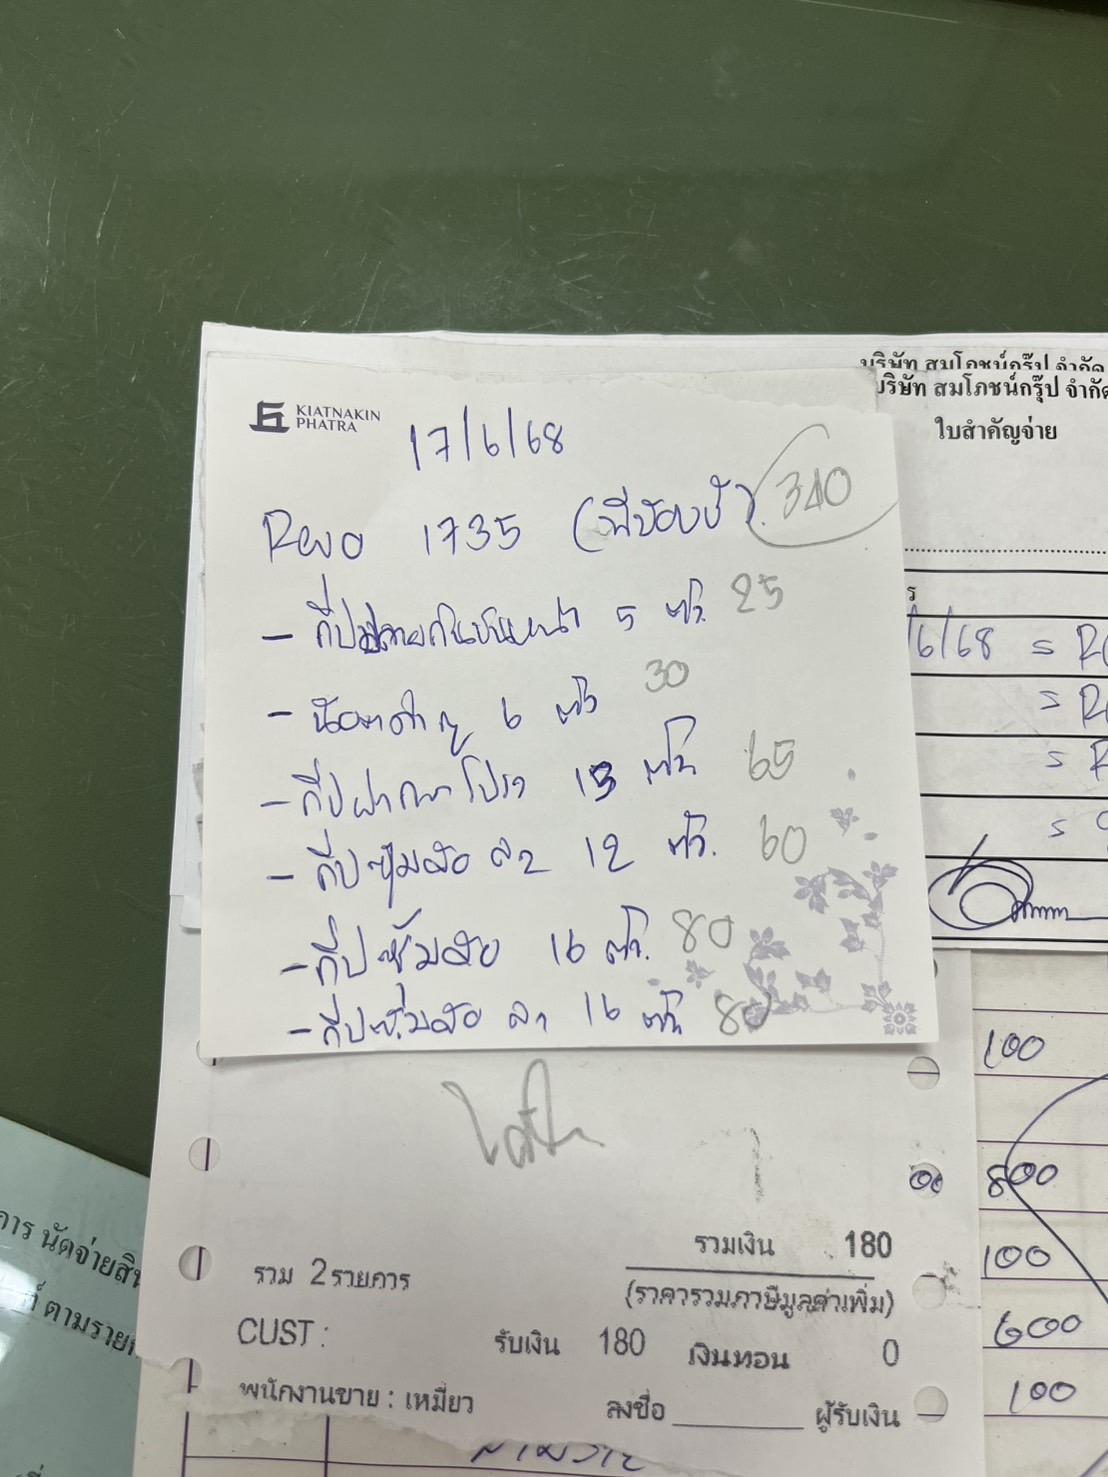 บริษัท สมโภชน์กรุ๊ป จำกัด
บริษัท สมโภชน์กรุ๊ป จำกัด
ใบสำคัญจ่าย
KIATNAKIN
PHATRA
17/6/68
340
Revo 1735 (พี่น้อง
- กิ๊ปปลายกันชนหน้า 5 ตัว 25
- น๊อต 6 ตัว 30
- กิ๊ป 13 ตัว 65
- กิ๊ปซุ้มล้อ 12 ตัว. 60
- กิ๊ปซุ้มล้อ 16 ตัว. 80
- กิ๊ปซุ้มล้อ 16 ตัว 80
/6/68 = R
= R
100
800
100
600
100
รวมเงิน 180
รวม 2รายการ
(ราคารวมภาษีมูลค่าเพิ่ม)
CUST :
รับเงิน 180 เงินทอน 0
พนักงานขาย : เหมี่ยว
ลงชื่อ ________ ผู้รับเงิน
การ นัดจ่ายสิน
ตามราย